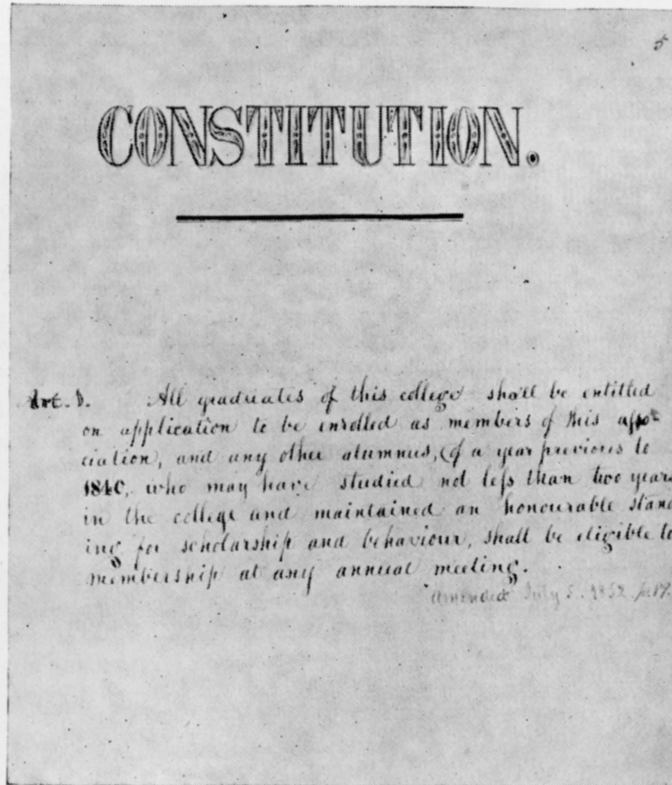 5
CONSTITUTION.
Art. 1. All graduates of this college shall be entitled
on application to be enrolled as members of this asso-
ciation, and any other alumnus, (of a year previous to
1840, who may have studied not less than two years
in the college and maintained an honourable stand
ing for scholarship and behaviour, shall be eligible to
membership at any annual meeting.
Amended July 5. 1852.